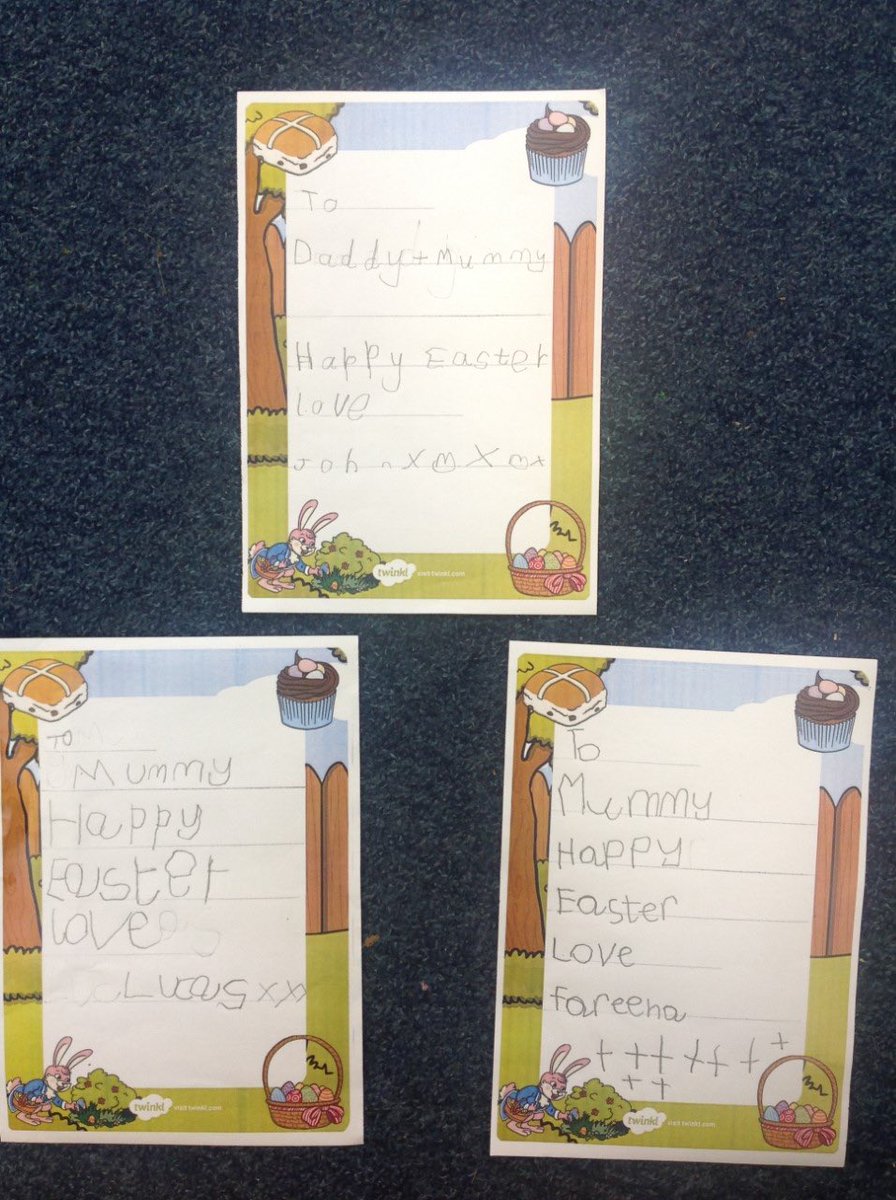 To
Daddy + Mummy
Happy Easter
love
John x x x
twinkl visit twinkl.com
To
Mummy
Happy
Easter
love
Lucas xxx
twinkl visit twinkl.com
To
Mummy
Happy
Easter
Love
fareena
+ + + + + + +
+ +
twinkl visit twinkl.com